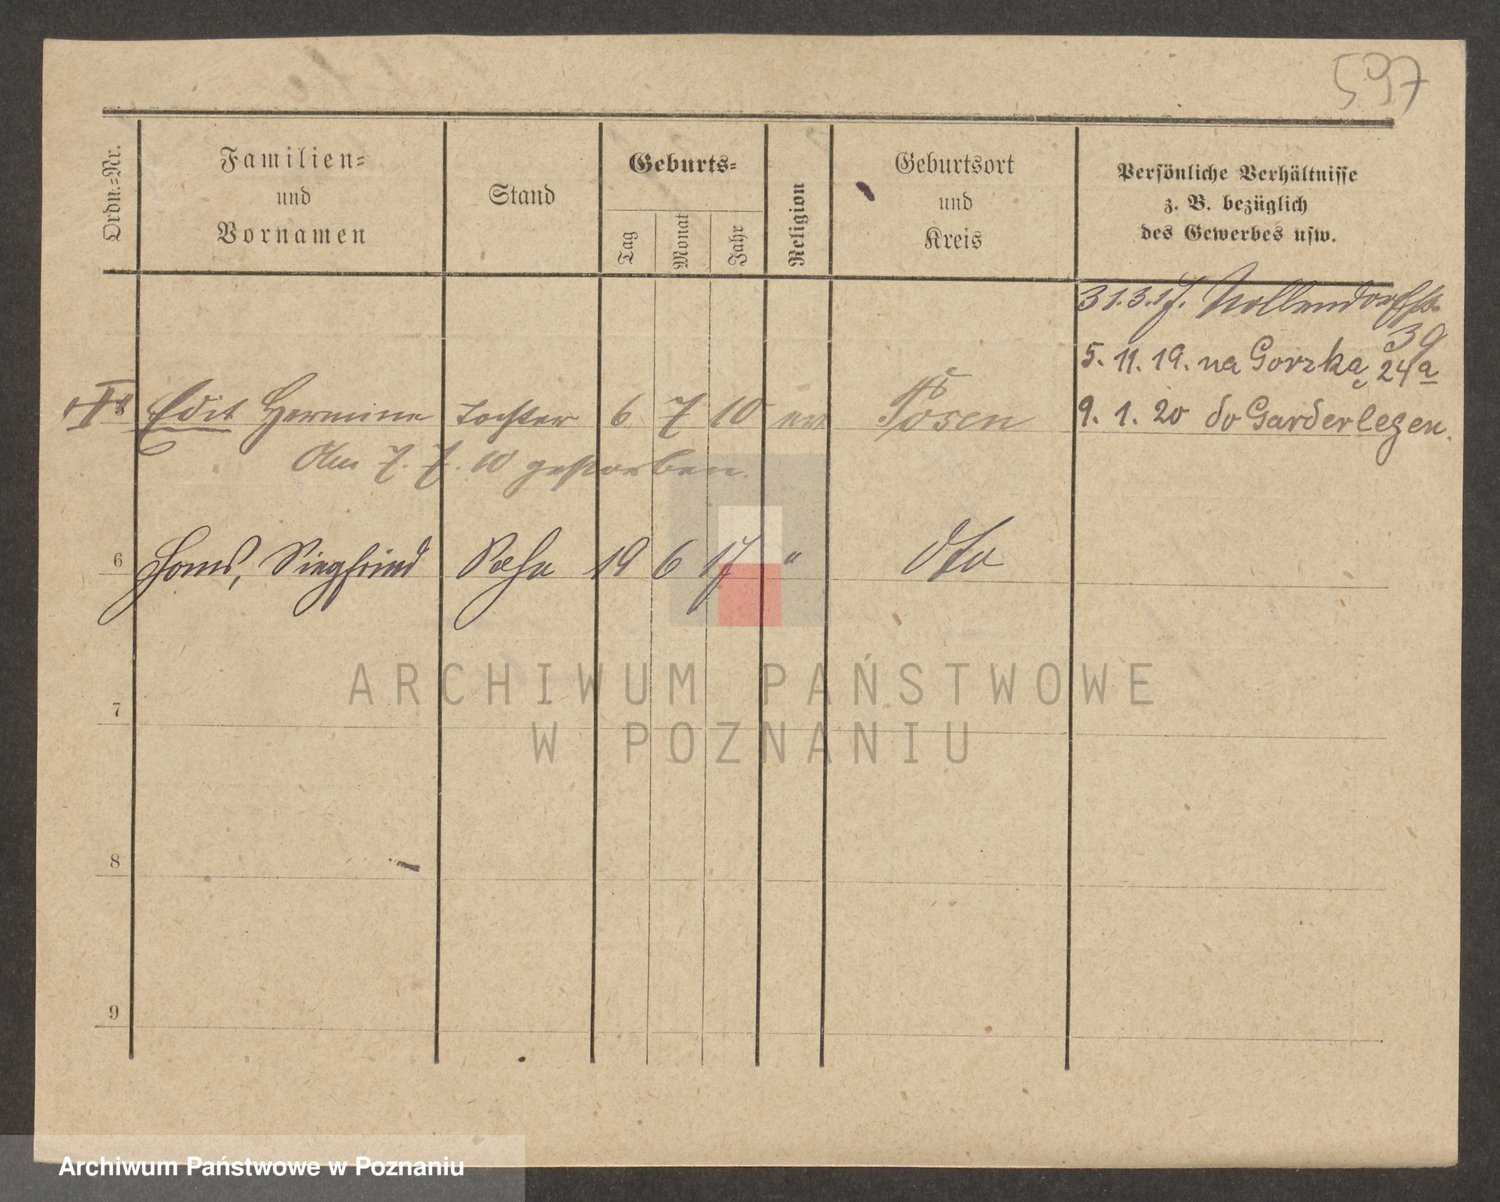 597
Ordn.-Nr.
Familien-
und
Vornamen
Stand
Geburts-
Tag
Monat
Jahr
Religion
Geburtsort
und
Kreis
Persönliche Verhältnisse
z. B. bezüglich
des Gewerbes usw.
31.3.17. Nollendorfstr.
39
5. 11. 19. na Gorzka, 24a
Edit Hermine Tochter 6 7 10 Posen
9. 1. 20 do Garderlegen.
Am 7. 7. 10 gestorben.
6 Hans, Siegfried Sohn 19 6 17 " dto
7
8
9
ARCHIWUM PAŃSTWOWE
W POZNANIU
Archiwum Państwowe w Poznaniu